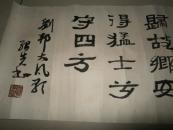 歸故鄉安
得猛士兮
守四方
劉邦大風歌